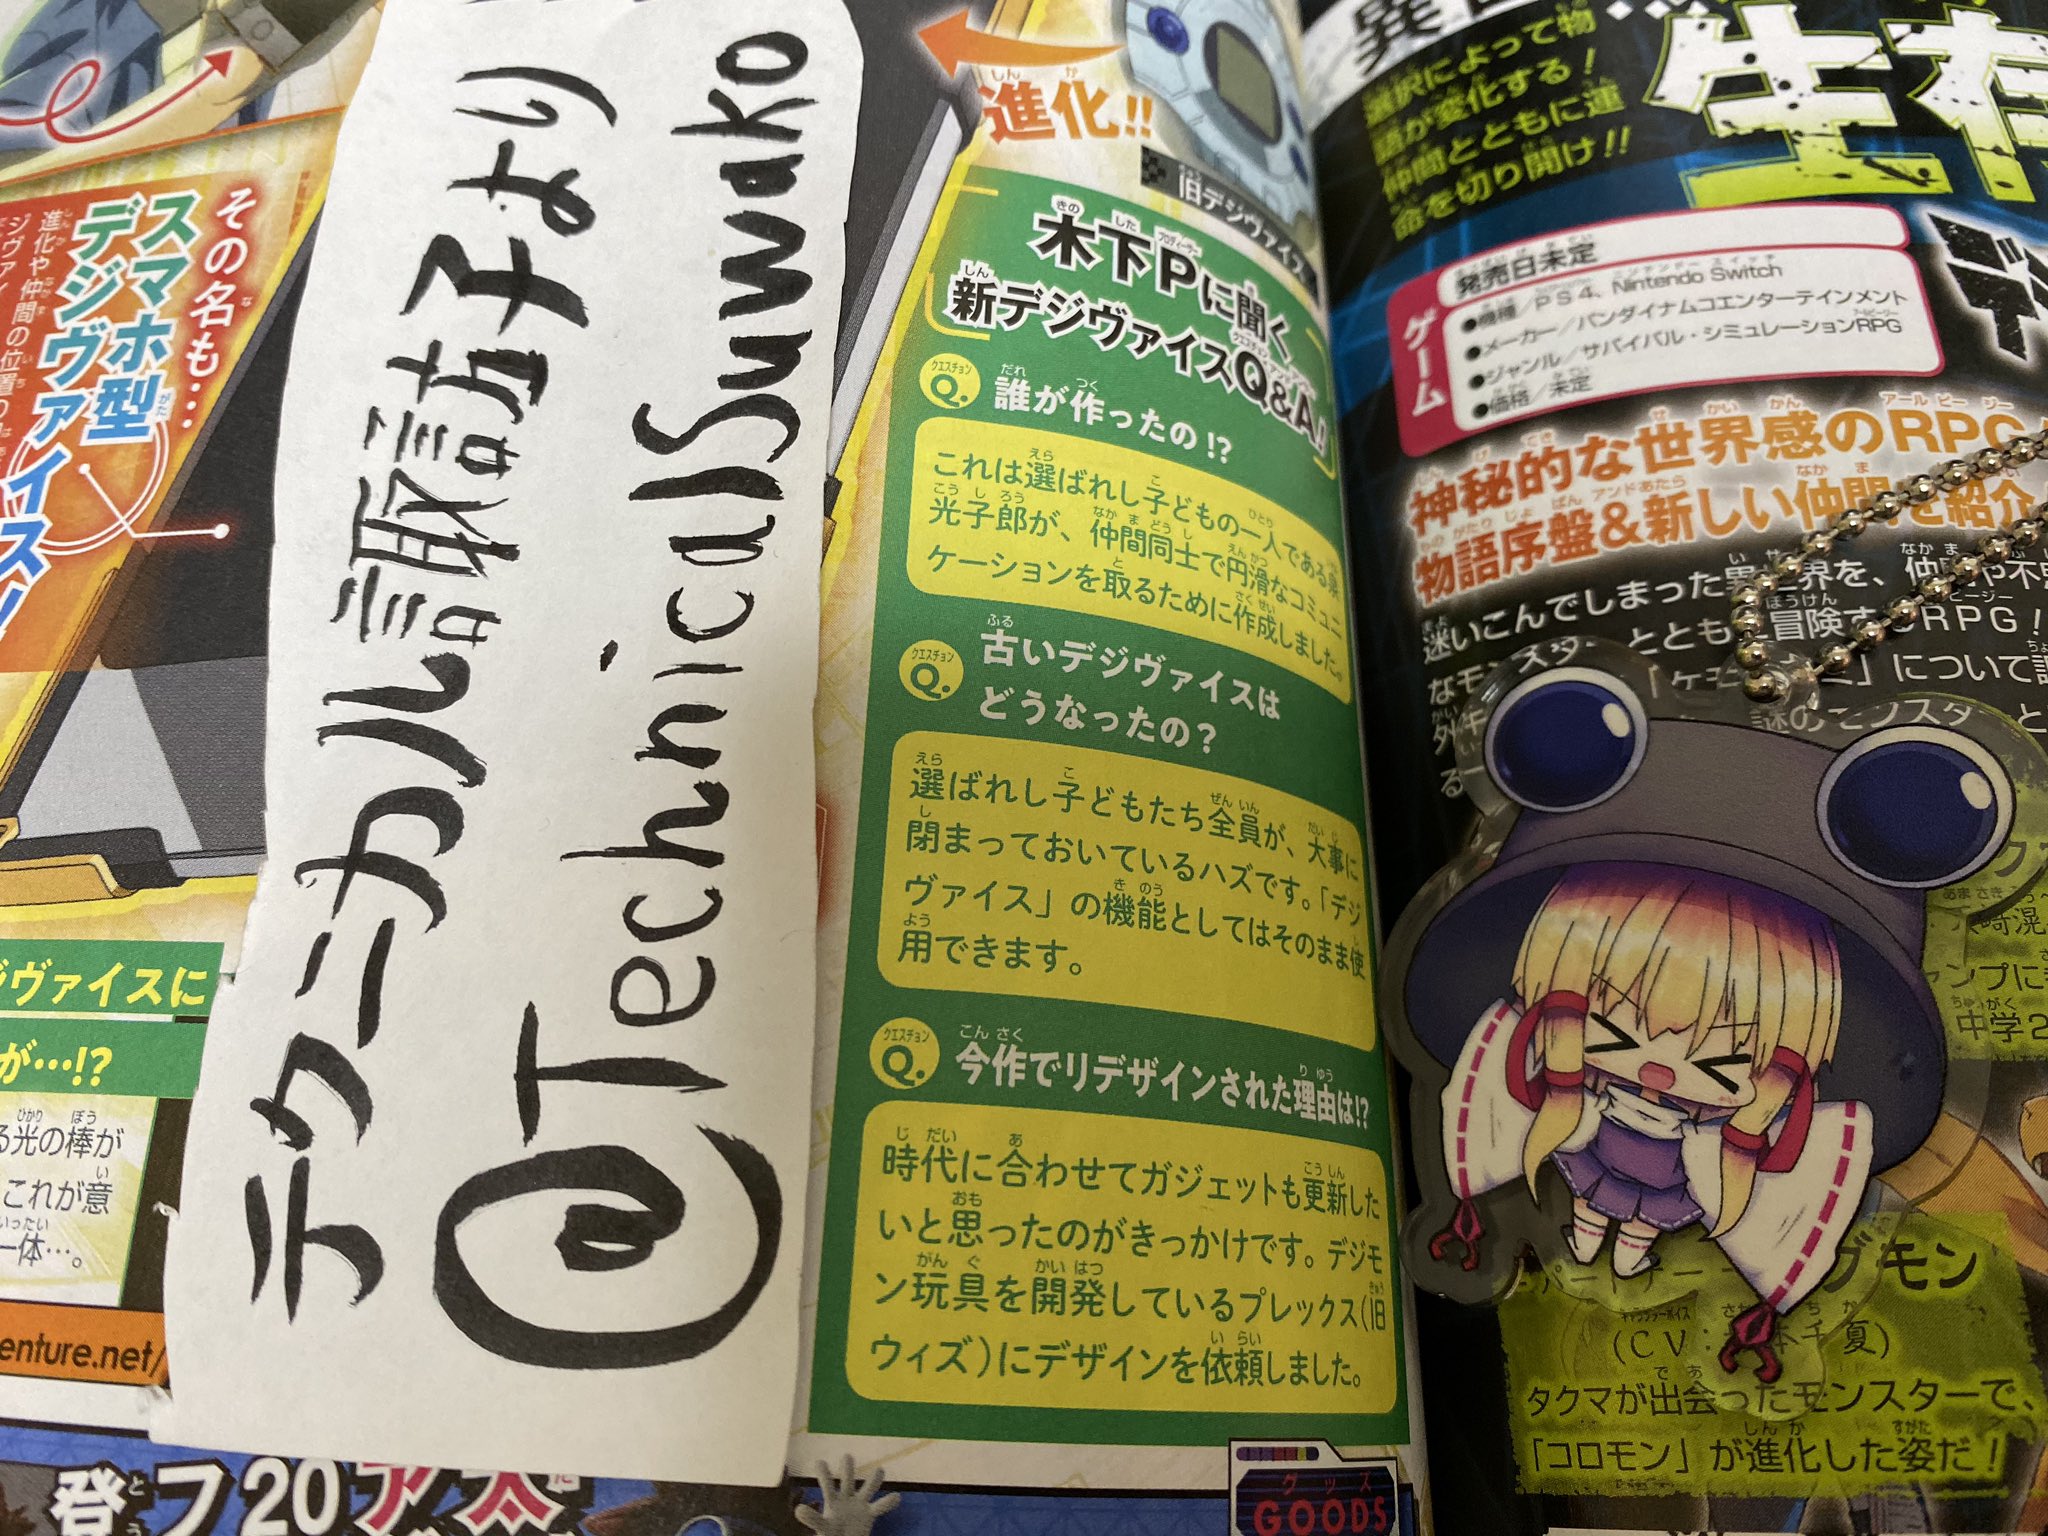 テクニカル諏訪子より
@TechnicalSuwako
進化!!
旧デジヴァイス
その名も…
スマホ型
デジヴァイス!
進化や仲間の位置
木下Pに聞く
新デジヴァイスQ&A!
Q. 誰が作ったの!?
これは選ばれし子どもの一人である泉
光子郎が、仲間同士で円滑なコミュニ
ケーションを取るために作成しました。
Q. 古いデジヴァイスは
どうなったの?
選ばれし子どもたち全員が、大事に
閉まっておいているハズです。「デジ
ヴァイス」の機能としてはそのまま使
用できます。
Q. 今作でリデザインされた理由は!?
時代に合わせてガジェットも更新した
いと思ったのがきっかけです。デジモ
ン玩具を開発しているプレックス(旧
ウィズ)にデザインを依頼しました。
ヴァイスに
が…!?
る光の棒が
これが意
一体…。
enture.net/
グッズ
GOODS
選択によって物
語が変化する!
仲間とともに運
命を切り開け!!
ゲーム
発売日未定
●機種/PS4、Nintendo Switch
●メーカー/バンダイナムコエンターテインメント
●ジャンル/サバイバル・シミュレーションRPG
●価格/未定
神秘的な世界感のRPG
物語序盤&新しい仲間を紹介
迷いこんでしまった異世界を、仲間や不思
なモンスターとともに冒険するRPG!
について
謎のモンスター
中学2
パートナー
グモン
タクマが出会ったモンスターで、
「コロモン」が進化した姿だ!